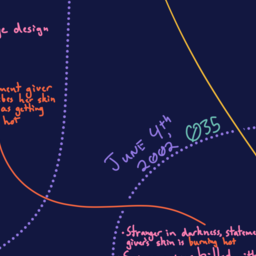 design
ment giver
bes her skin
as getting
hot
JUNE 4th,
2002
035
· Stranger in darkness, stateme
giver's skin is burning hot